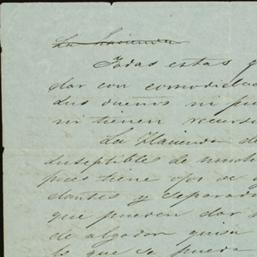 La hacienda
Todas estas
dar con comodidad
sus dueños ni pue
ni tienen recurso
La Hacienda de
suseptibles de much
pues tiene ojos de
dantes y separado
que pueden dar
de algodon quisa
lo que se pueda